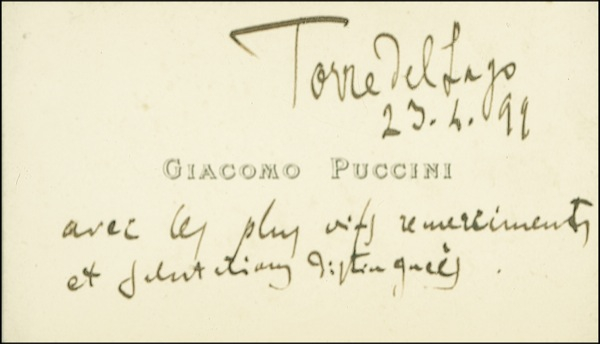 Torre del Lago
23.4.99
GIACOMO PUCCINI
avec les plus vifs remerciments
et salutations distinguées.